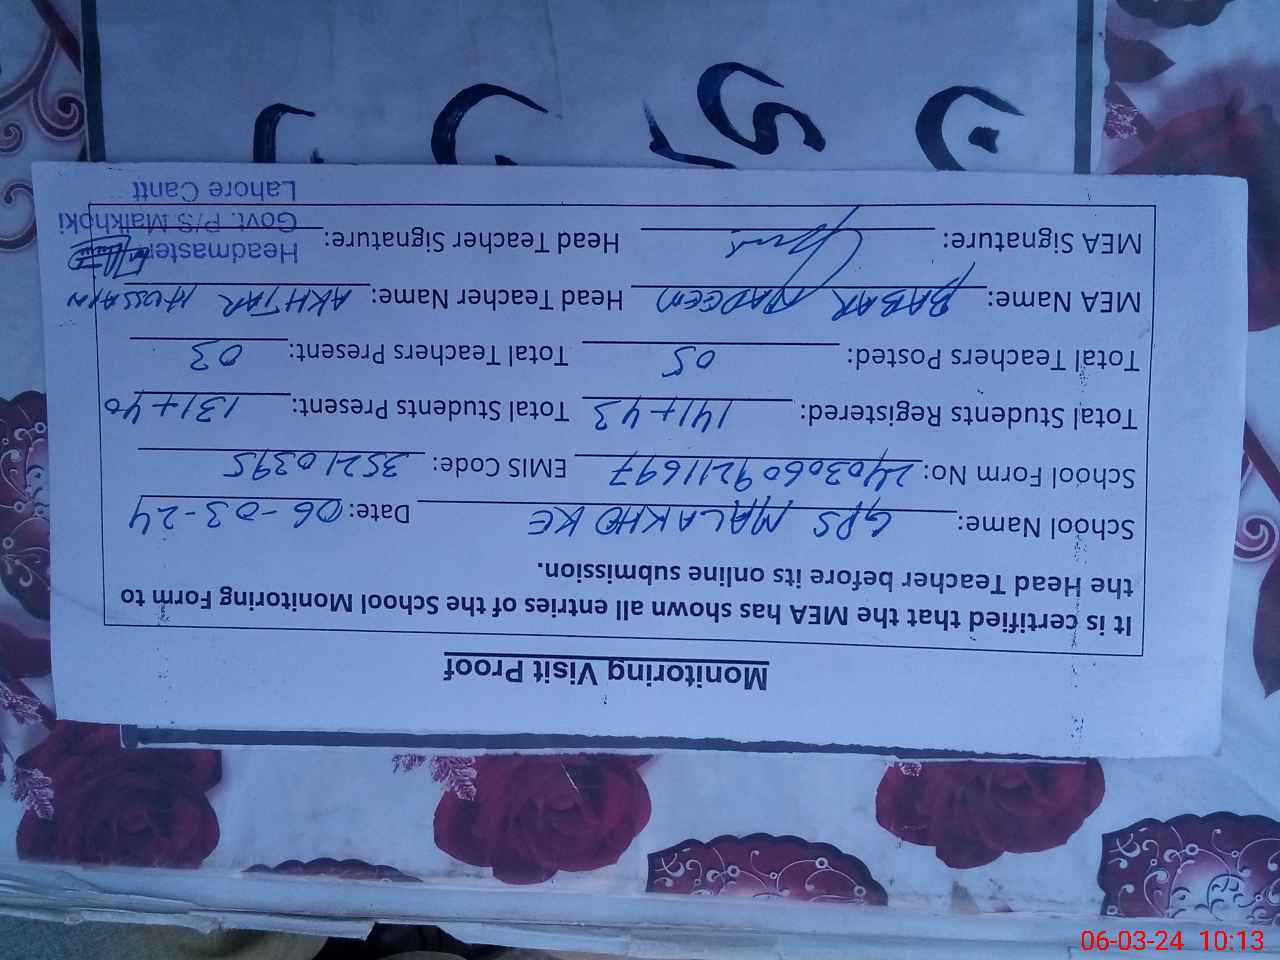 Monitoring Visit Proof
It is certified that the MEA has shown all entries of the School Monitoring Form to
the Head Teacher before its online submission.
School Name: GPS MALAKHO KE Date: 06-03-24
School Form No: 24030609211697 EMIS Code: 35210395
Total Students Registered: 141+43 Total Students Present: 131+40
Total Teachers Posted: 05 Total Teachers Present: 03
MEA Name: BABAR NADEEM Head Teacher Name: AKHTAR HUSSAIN
MEA Signature: Head Teacher Signature:
Headmaster
Govt. P/S Malkhoki
Lahore Cantt
06-03-24 10:13